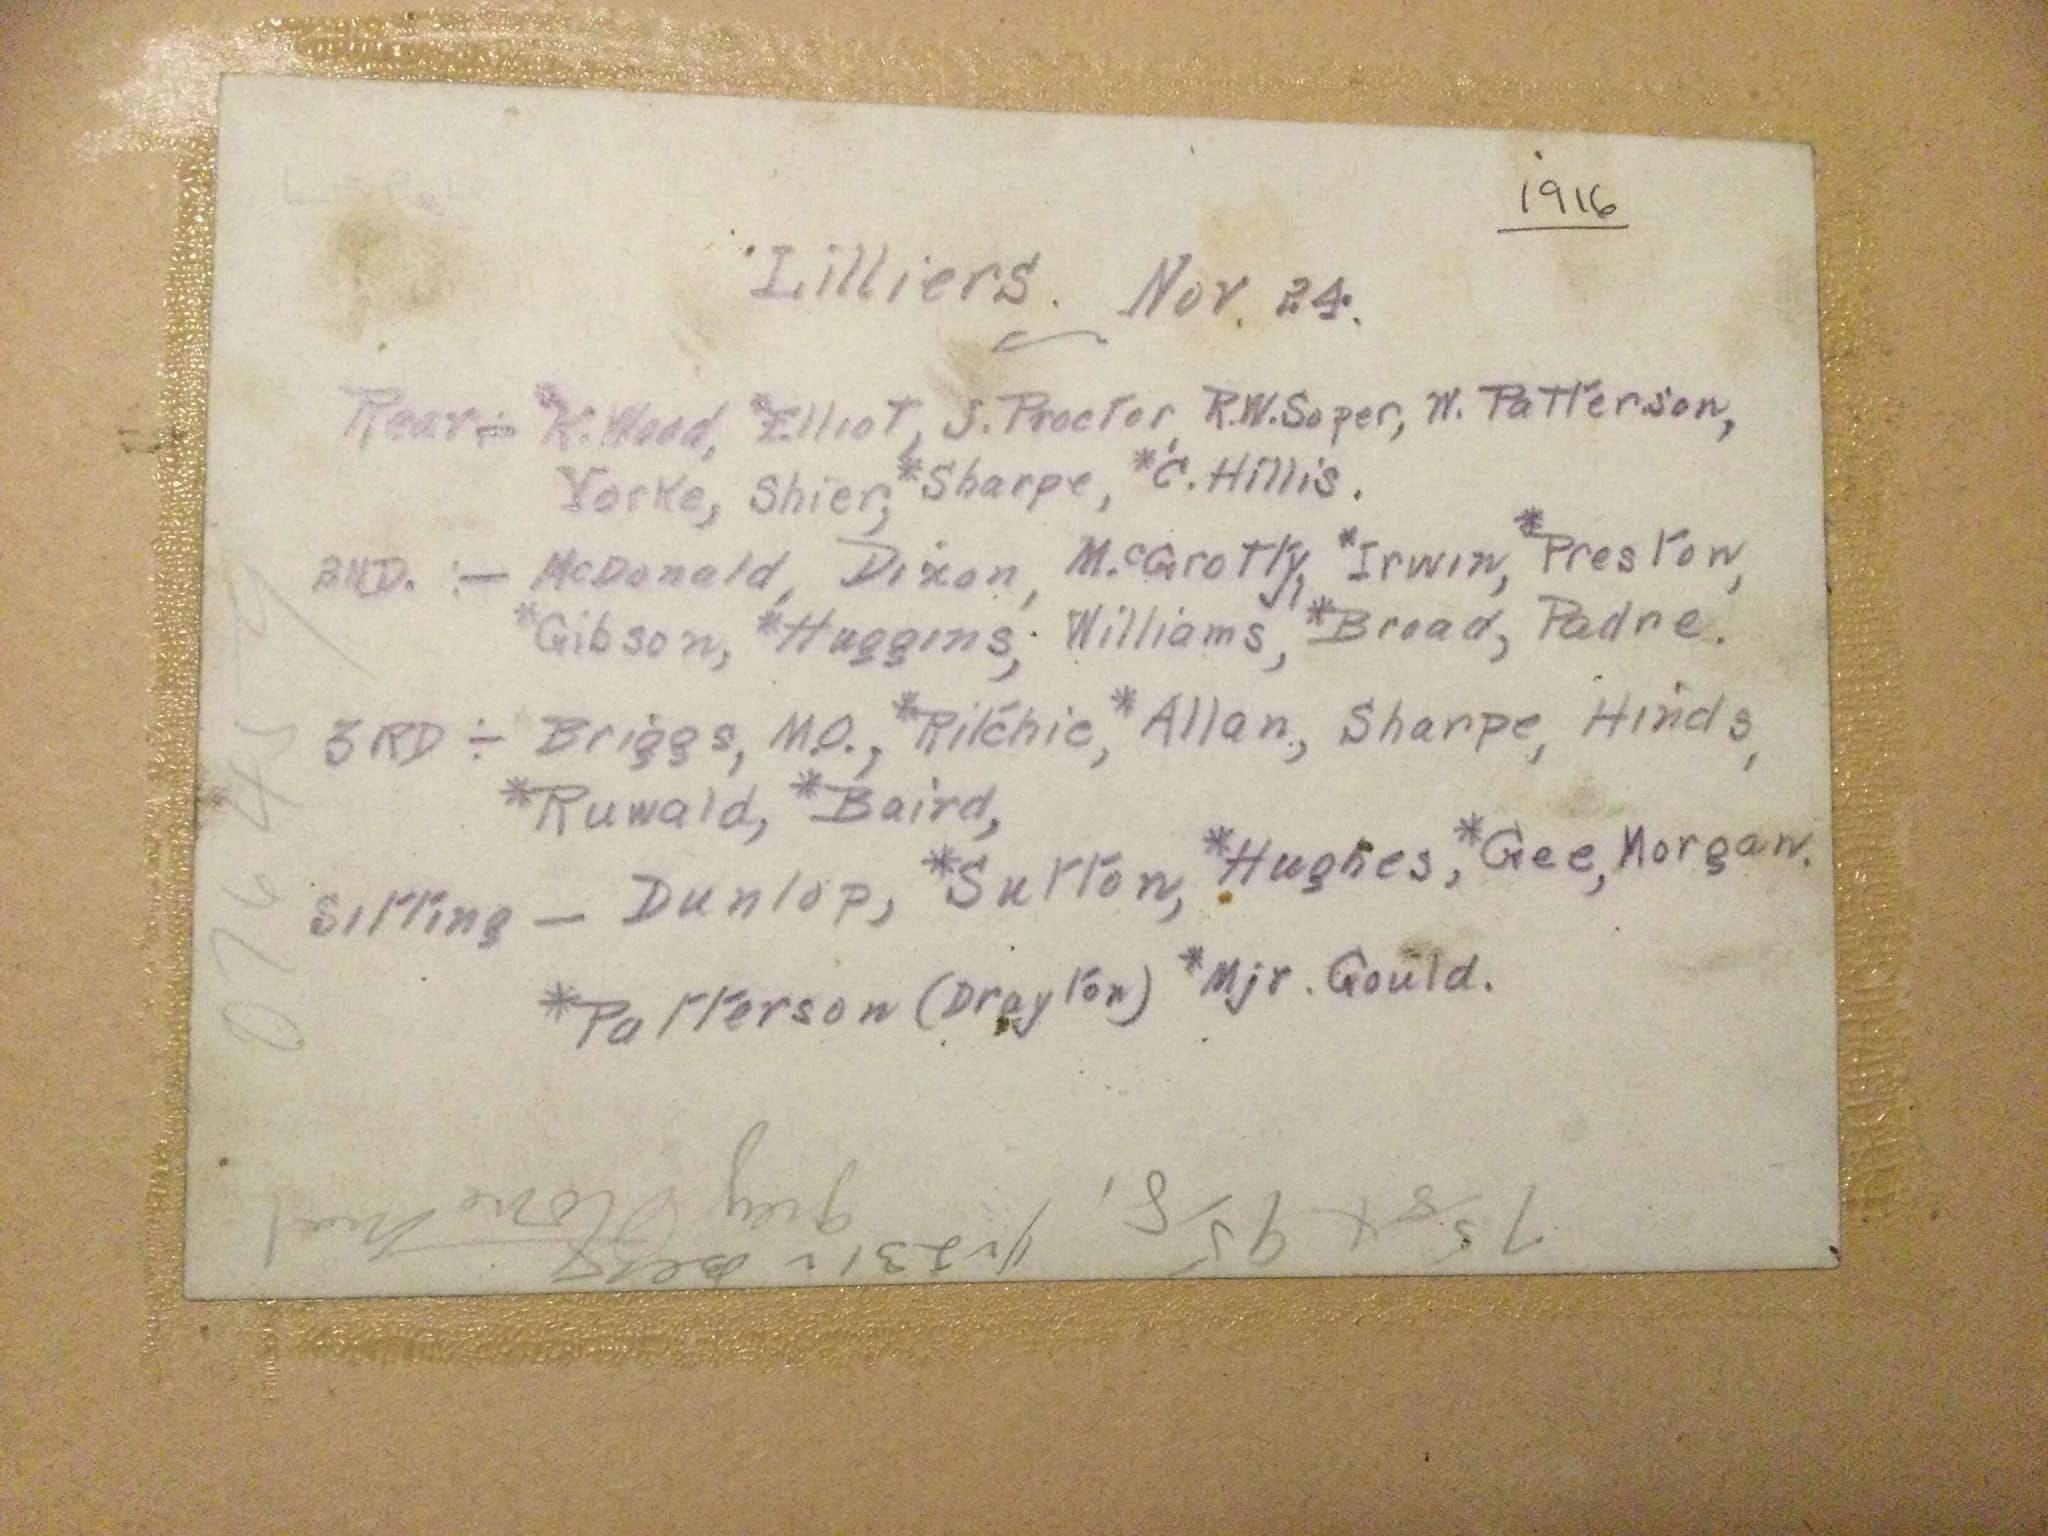 1916
Lilliers. Nov. 24.
Rear ÷ *K. Wood, *Elliot, J. Proctor, R.W. Soper, W. Patterson,
Yorke, Shier, *Sharpe, *C. Hillis.
2ND. :- McDonald, Dixon, McGrotty, *Irwin, *Preston,
*Gibson, *Huggins, Williams, *Broad, Padre.
3RD ÷ Briggs, M.O., *Ritchie, *Allan, Sharpe, Hinds,
*Ruwald, *Baird,
Sitting - Dunlop, *Sutton, *Hughes, *Gee, Morgan.
*Patterson (Drayton) *Mjr. Gould.
7 5/8 x 9 5/8
grey Stone